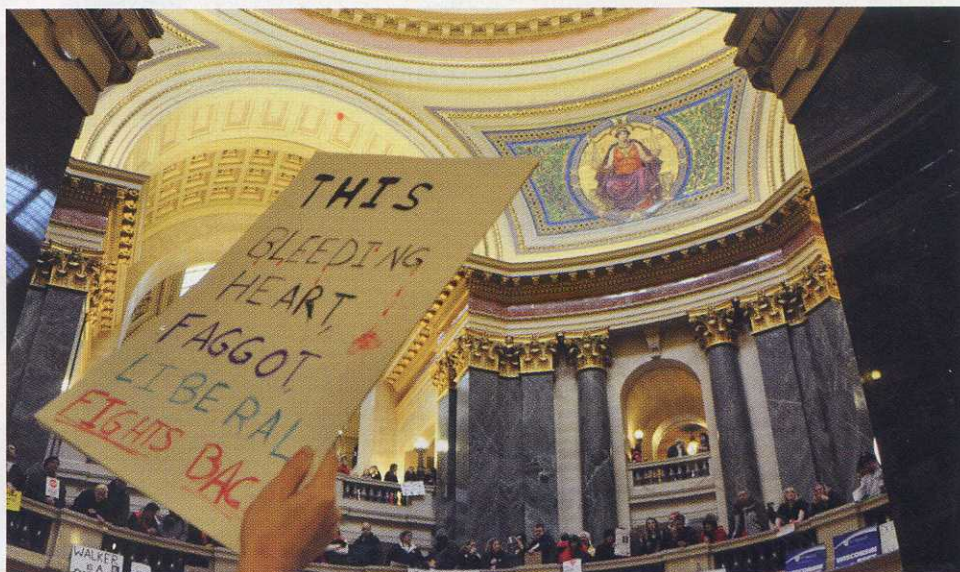 THIS
BLEEDING
HEART,
FAGGOT,
LIBERAL
FIGHTS BAC
WALKER
IS A